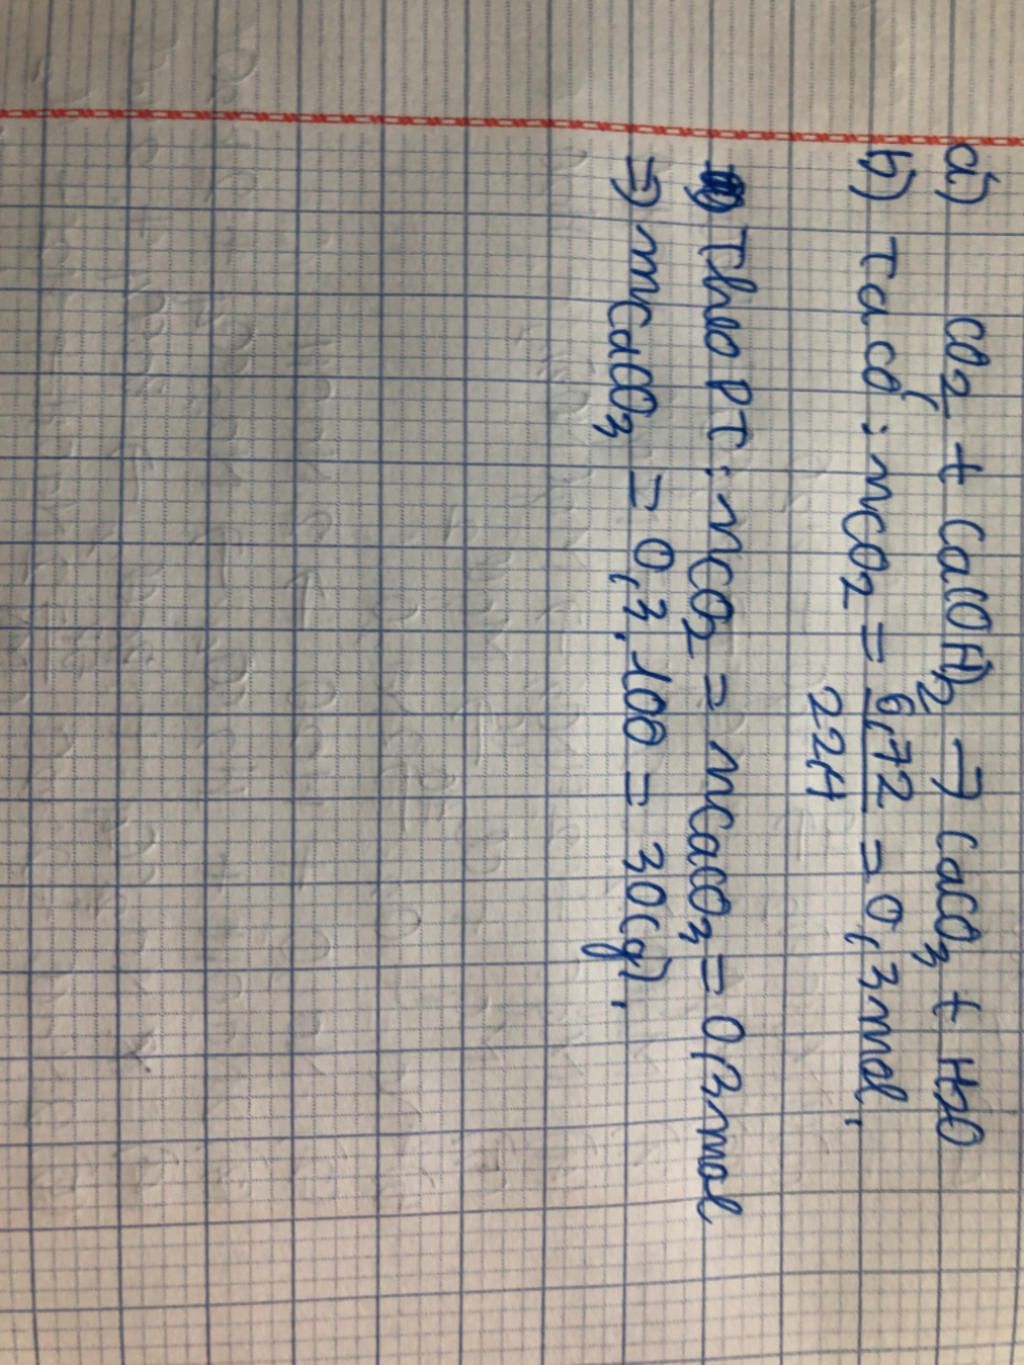 a) CO2 + Ca(OH)2 → CaCO3 + H2O
b) Ta có : nCO2 = 6,72 / 22,4 = 0,3 mol.
Theo PT : nCO2 = nCaCO3 = 0,3 mol
=> mCaCO3 = 0,3.100 = 30(g).